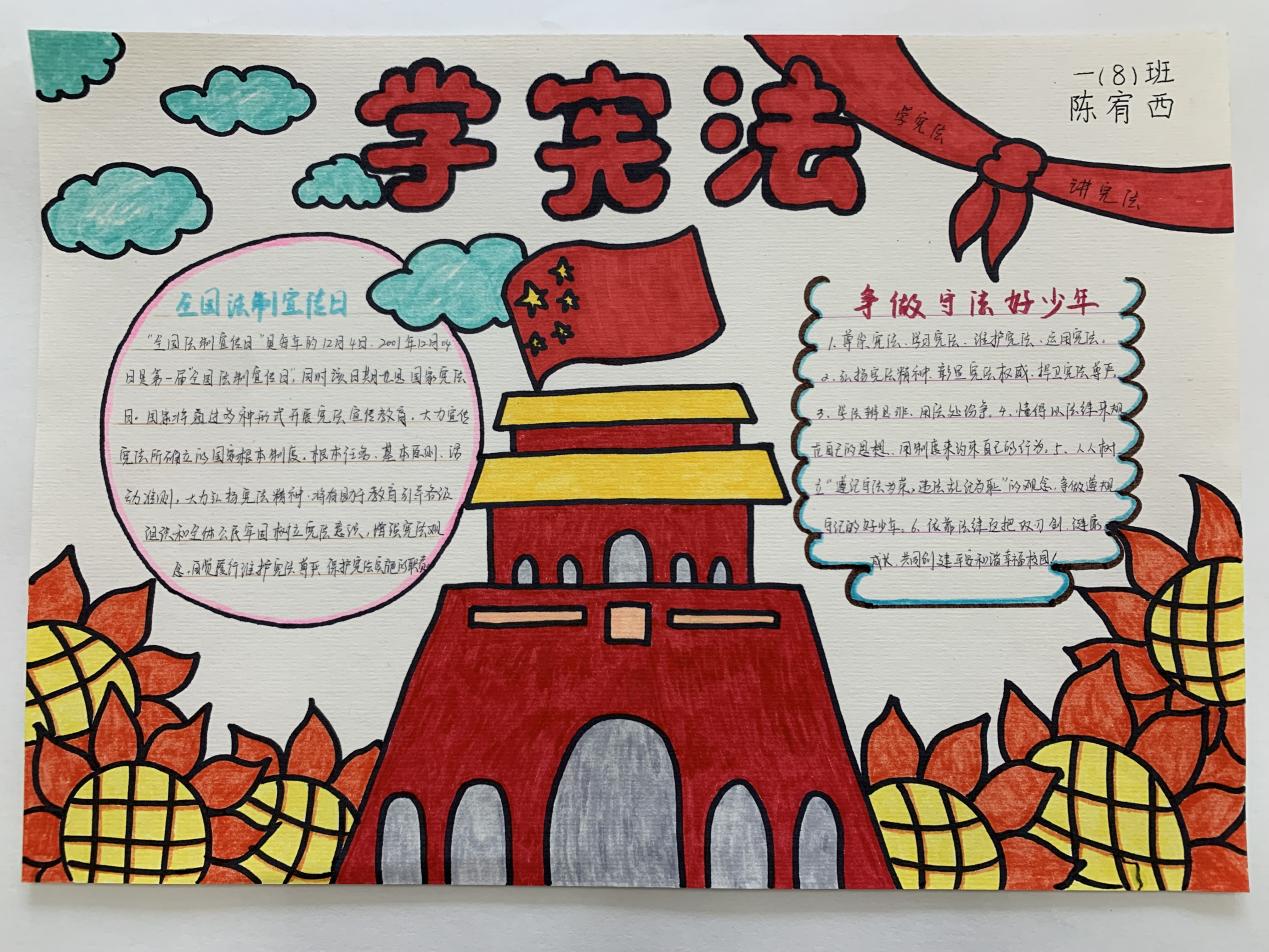 学宪法
一(8)班
陈宥西
学宪法
讲宪法
全国法制宣传日
"全国法制宣传日"是每年的12月4日.2001年12月04
日是第一届"全国法制宣传日",同时该日期也是国家宪法
日.国家将通过多种形式开展宪法宣传教育,大力宣传
宪法所确立的国家根本制度、根本任务、基本原则、活
动准则,大力弘扬宪法精神.将有助于教育引导各级
组织和全体公民牢固树立宪法意识,增强宪法观
念.自觉履行维护宪法尊严、保护宪法实施的职责
争做守法好少年
1.尊崇宪法、学习宪法、维护宪法、运用宪法.
2.弘扬宪法精神.彰显宪法权威.捍卫宪法尊严
3.学法辨是非、用法处纷争.4.懂得以法律来规
范自己的思想、用制度来约束自己的行为.5、人人树
立"遵纪守法为荣、违法乱纪为耻"的观念.争做遵规
守纪的好少年.6.依靠法律这把双刃剑.健康
成长.共同创建平安和谐幸福校园!